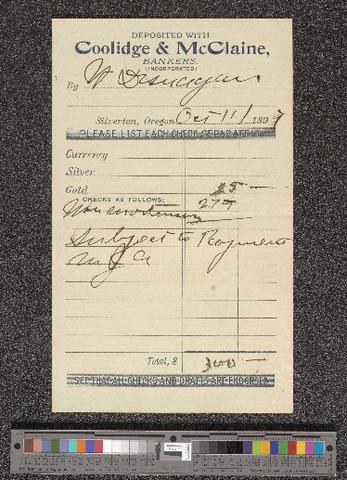 DEPOSITED WITH
Coolidge & McClaine,
BANKERS.
(INCORPORATED)
By
Silverton, Oregon, Oct 11 1897
PLEASE LIST EACH CHECK SEPARATELY
Currency
Silver
Gold 25 —
CHECKS AS FOLLOWS: 275
Subject to Payment
Total, $ 300 —
SEE THAT ALL CHECKS AND DRAFTS ARE ENDORSED